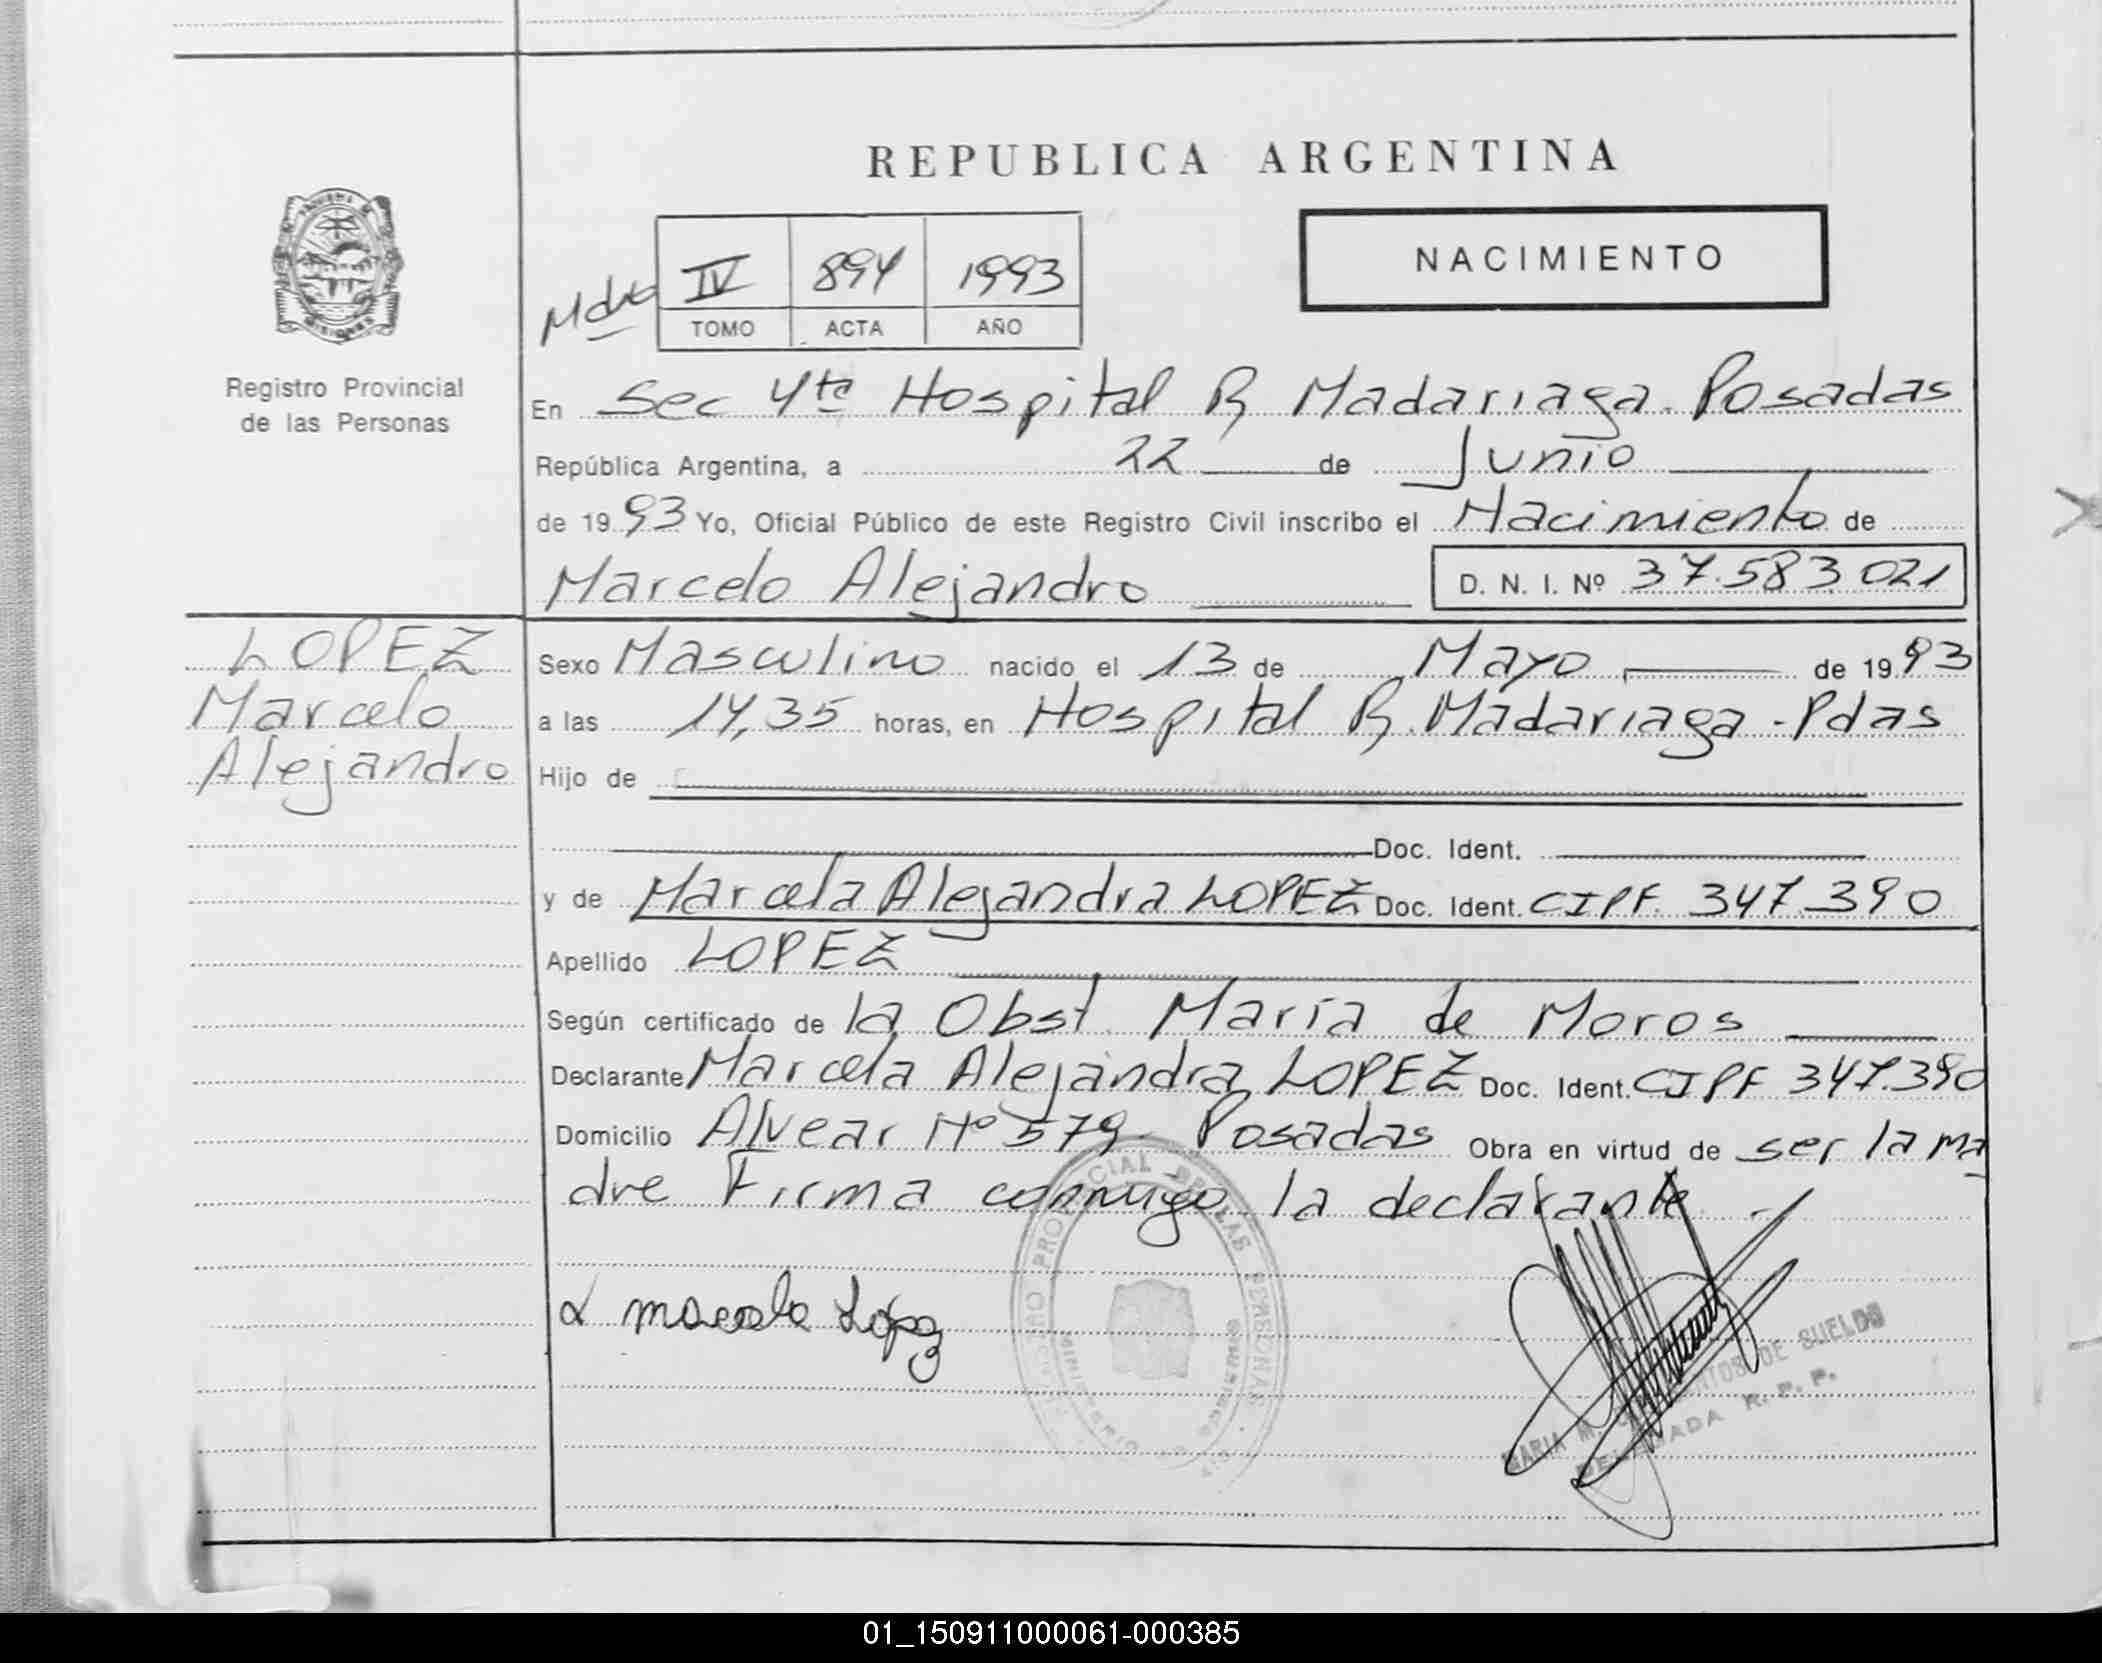 REPUBLICA ARGENTINA
NACIMIENTO
Mdro
IV 894 1993
TOMO ACTA AÑO
Registro Provincial
de las Personas
En Sec 4ta Hospital R Madariaga. Posadas
República Argentina, a 22 de Junio
de 1993 Yo, Oficial Público de este Registro Civil inscribo el Nacimiento de
Marcelo Alejandro D. N. I. Nº 37.583.021
LOPEZ
Marcelo
Alejandro
Sexo Masculino nacido el 13 de Mayo de 1993
a las 14,35 horas, en Hospital R. Madariaga - Pdas
Hijo de
Doc. Ident.
y de Marcela Alejandra LOPEZ Doc. Ident. CIPF. 347.390
Apellido LOPEZ
Según certificado de la Obst. María de Moros
Declarante Marcela Alejandra LOPEZ Doc. Ident. CIPF 347.390
Domicilio Alvear Nº 579 - Posadas Obra en virtud de ser la ma
dre Firma conmigo la declarante. -
PROVINCIAL DE LAS PERSONAS
MINISTERIO
Marcela Lopez
MARIA M. DE SUELDO
DELEGADA R. P. P.
01_150911000061-000385